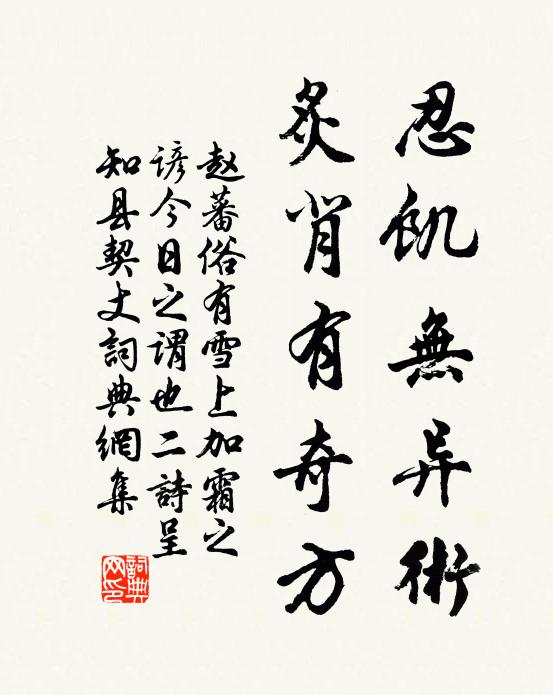 忍飢無异術
炙背有奇方
赵蕃俗有雪上加霜之
諺今日之謂也二詩呈
知县契丈詞典網集
詞典网印